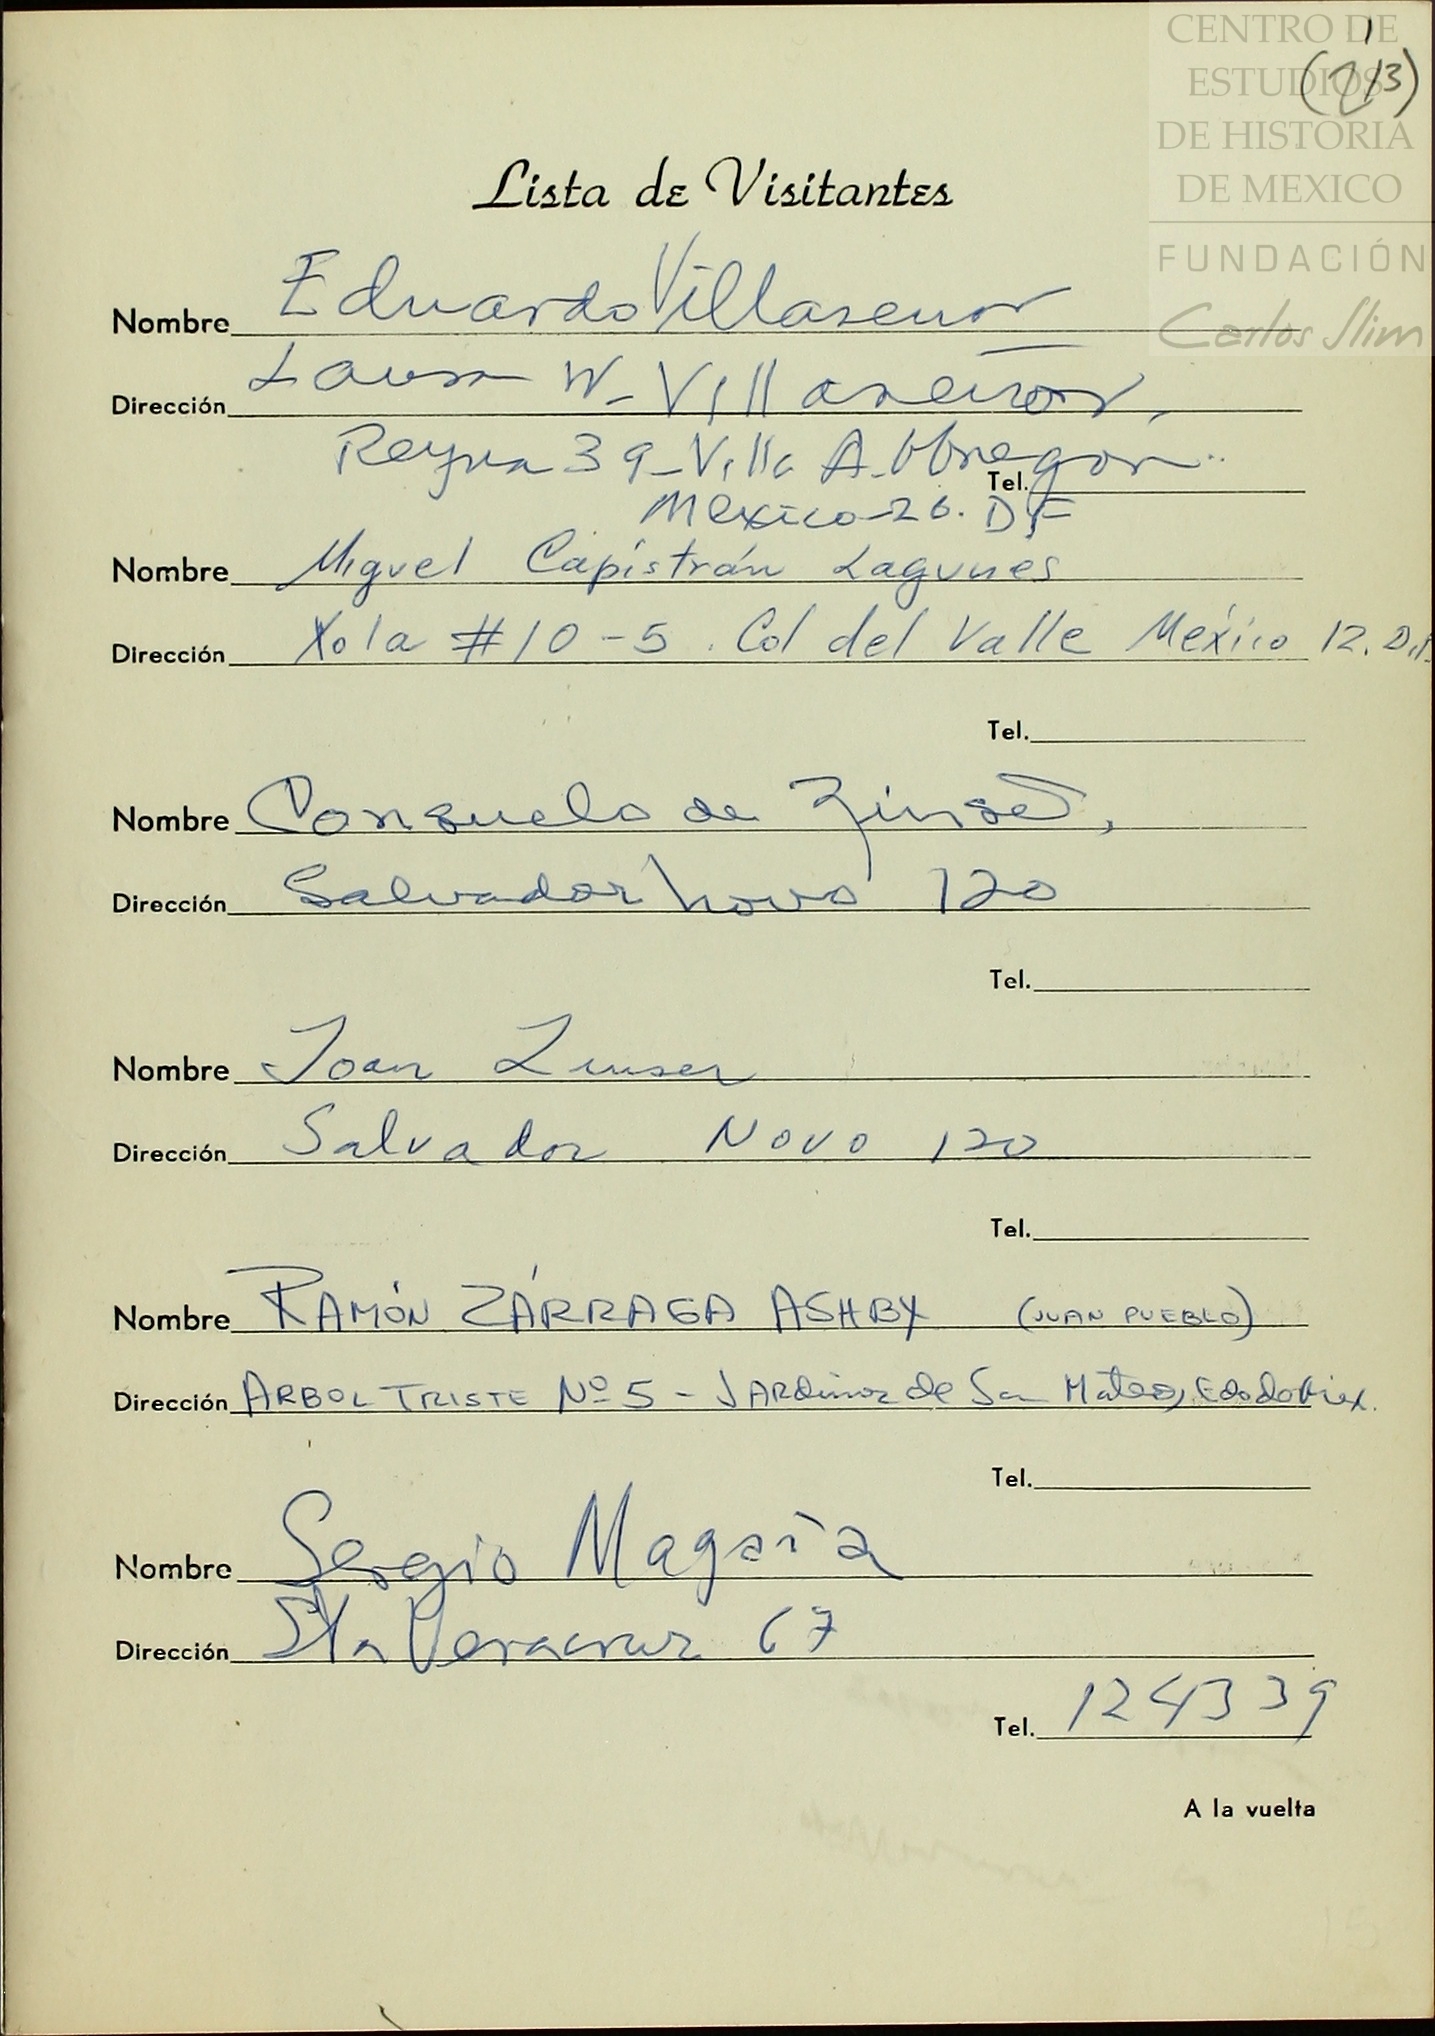 CENTRO DE
ESTUDIOS
DE HISTORIA
DE MEXICO
FUNDACIÓN
Carlos Slim
Lista de Visitantes
Nombre Eduardo Villasenor
Dirección Laura W. Villasenor,
Reyna 39 - Villa A. Obregon
Tel.
Mexico 20. D.F
Nombre Miguel Capistrán Lagunes
Dirección Xola #10-5. Col del Valle México 12. D.F.
Tel.
Nombre Consuelo de Zinser,
Dirección Salvador Novo 120
Tel.
Nombre Joan Zinser
Dirección Salvador Novo 120
Tel.
Nombre RAMÓN ZÁRRAGA ASHBY (JUAN PUEBLO)
Dirección ARBOL TRISTE Nº 5 - JARdines de San Mateo, Edo de Mex.
Tel.
Nombre Sergio Magaña
Dirección Sta Veracruz 67
Tel. 124339
A la vuelta